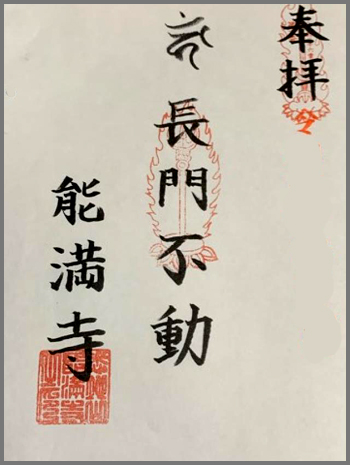 奉拝
長門不動
能満寺